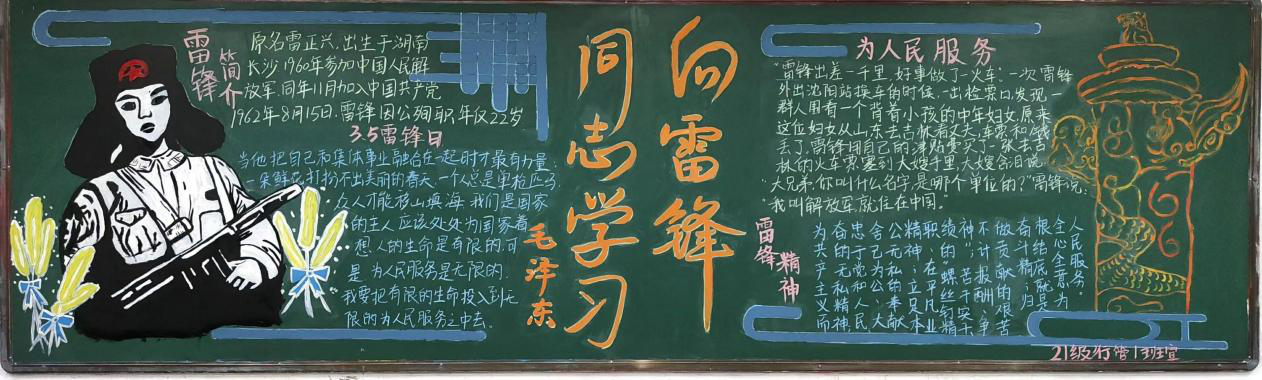 雷锋简介
原名雷正兴.出生于湖南
长沙1960年参加中国人民解
放军.同年11月加入中国共产党
1962年8月15日.雷锋因公殉职.年仅22岁
3.5雷锋日
当他把自己和集体事业融合在一起时才最有力量.
一朵鲜花打扮不出美丽的春天.一个人总是单枪匹马.
众人才能移山填海.我们是国家
的主人应该处处为国家着
想人的生命是有限的.可
是.为人民服务是无限的.
我要把有限的生命投入到无
限的为人民服务之中去.
向雷锋
同志学习
毛泽东
为人民服务
"雷锋出差一千里,好事做了一火车:一次雷锋
外出沈阳站换车的时候.一出检票口,发现一
群人围看一个背着小孩的中年妇女.原来
这位妇女从山东去吉林看丈夫,车票和钱
丢了,雷锋用自己的津贴费买了一张去吉
林的火车票塞到大嫂手里,大嫂含泪说.
"大兄弟.你叫什么名字.是哪个单位的?"雷锋说:
"我叫解放军,就住在中国。"
雷锋精神
21级行管1班宣